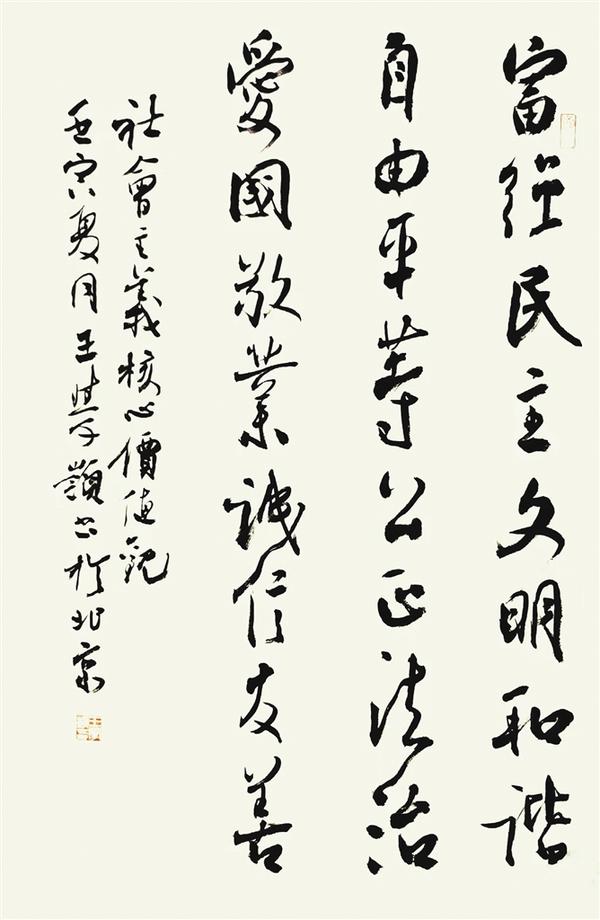 富强民主文明和諧
自由平等公正法治
愛國敬業誠信友善
社會主義核心價值觀
壬寅夏月王學嶺书於北京